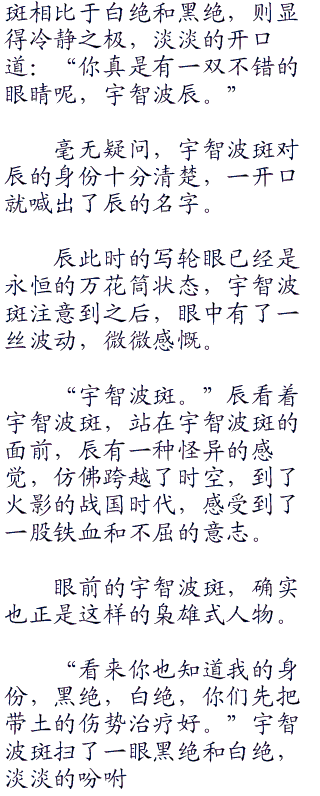 斑相比于白绝和黑绝，则显
得冷静之极，淡淡的开口
道：“你真是有一双不错的
眼睛呢，宇智波辰。”
毫无疑问，宇智波斑对
辰的身份十分清楚，一开口
就喊出了辰的名字。
辰此时的写轮眼已经是
永恒的万花筒状态，宇智波
斑注意到之后，眼中有了一
丝波动，微微感慨。
“宇智波斑。”辰看着
宇智波斑，站在宇智波斑的
面前，辰有一种怪异的感
觉，仿佛跨越了时空，到了
火影的战国时代，感受到了
一股铁血和不屈的意志。
眼前的宇智波斑，确实
也正是这样的枭雄式人物。
“看来你也知道我的身
份，黑绝，白绝，你们先把
带土的伤势治疗好。”宇智
波斑扫了一眼黑绝和白绝，
淡淡的吩咐